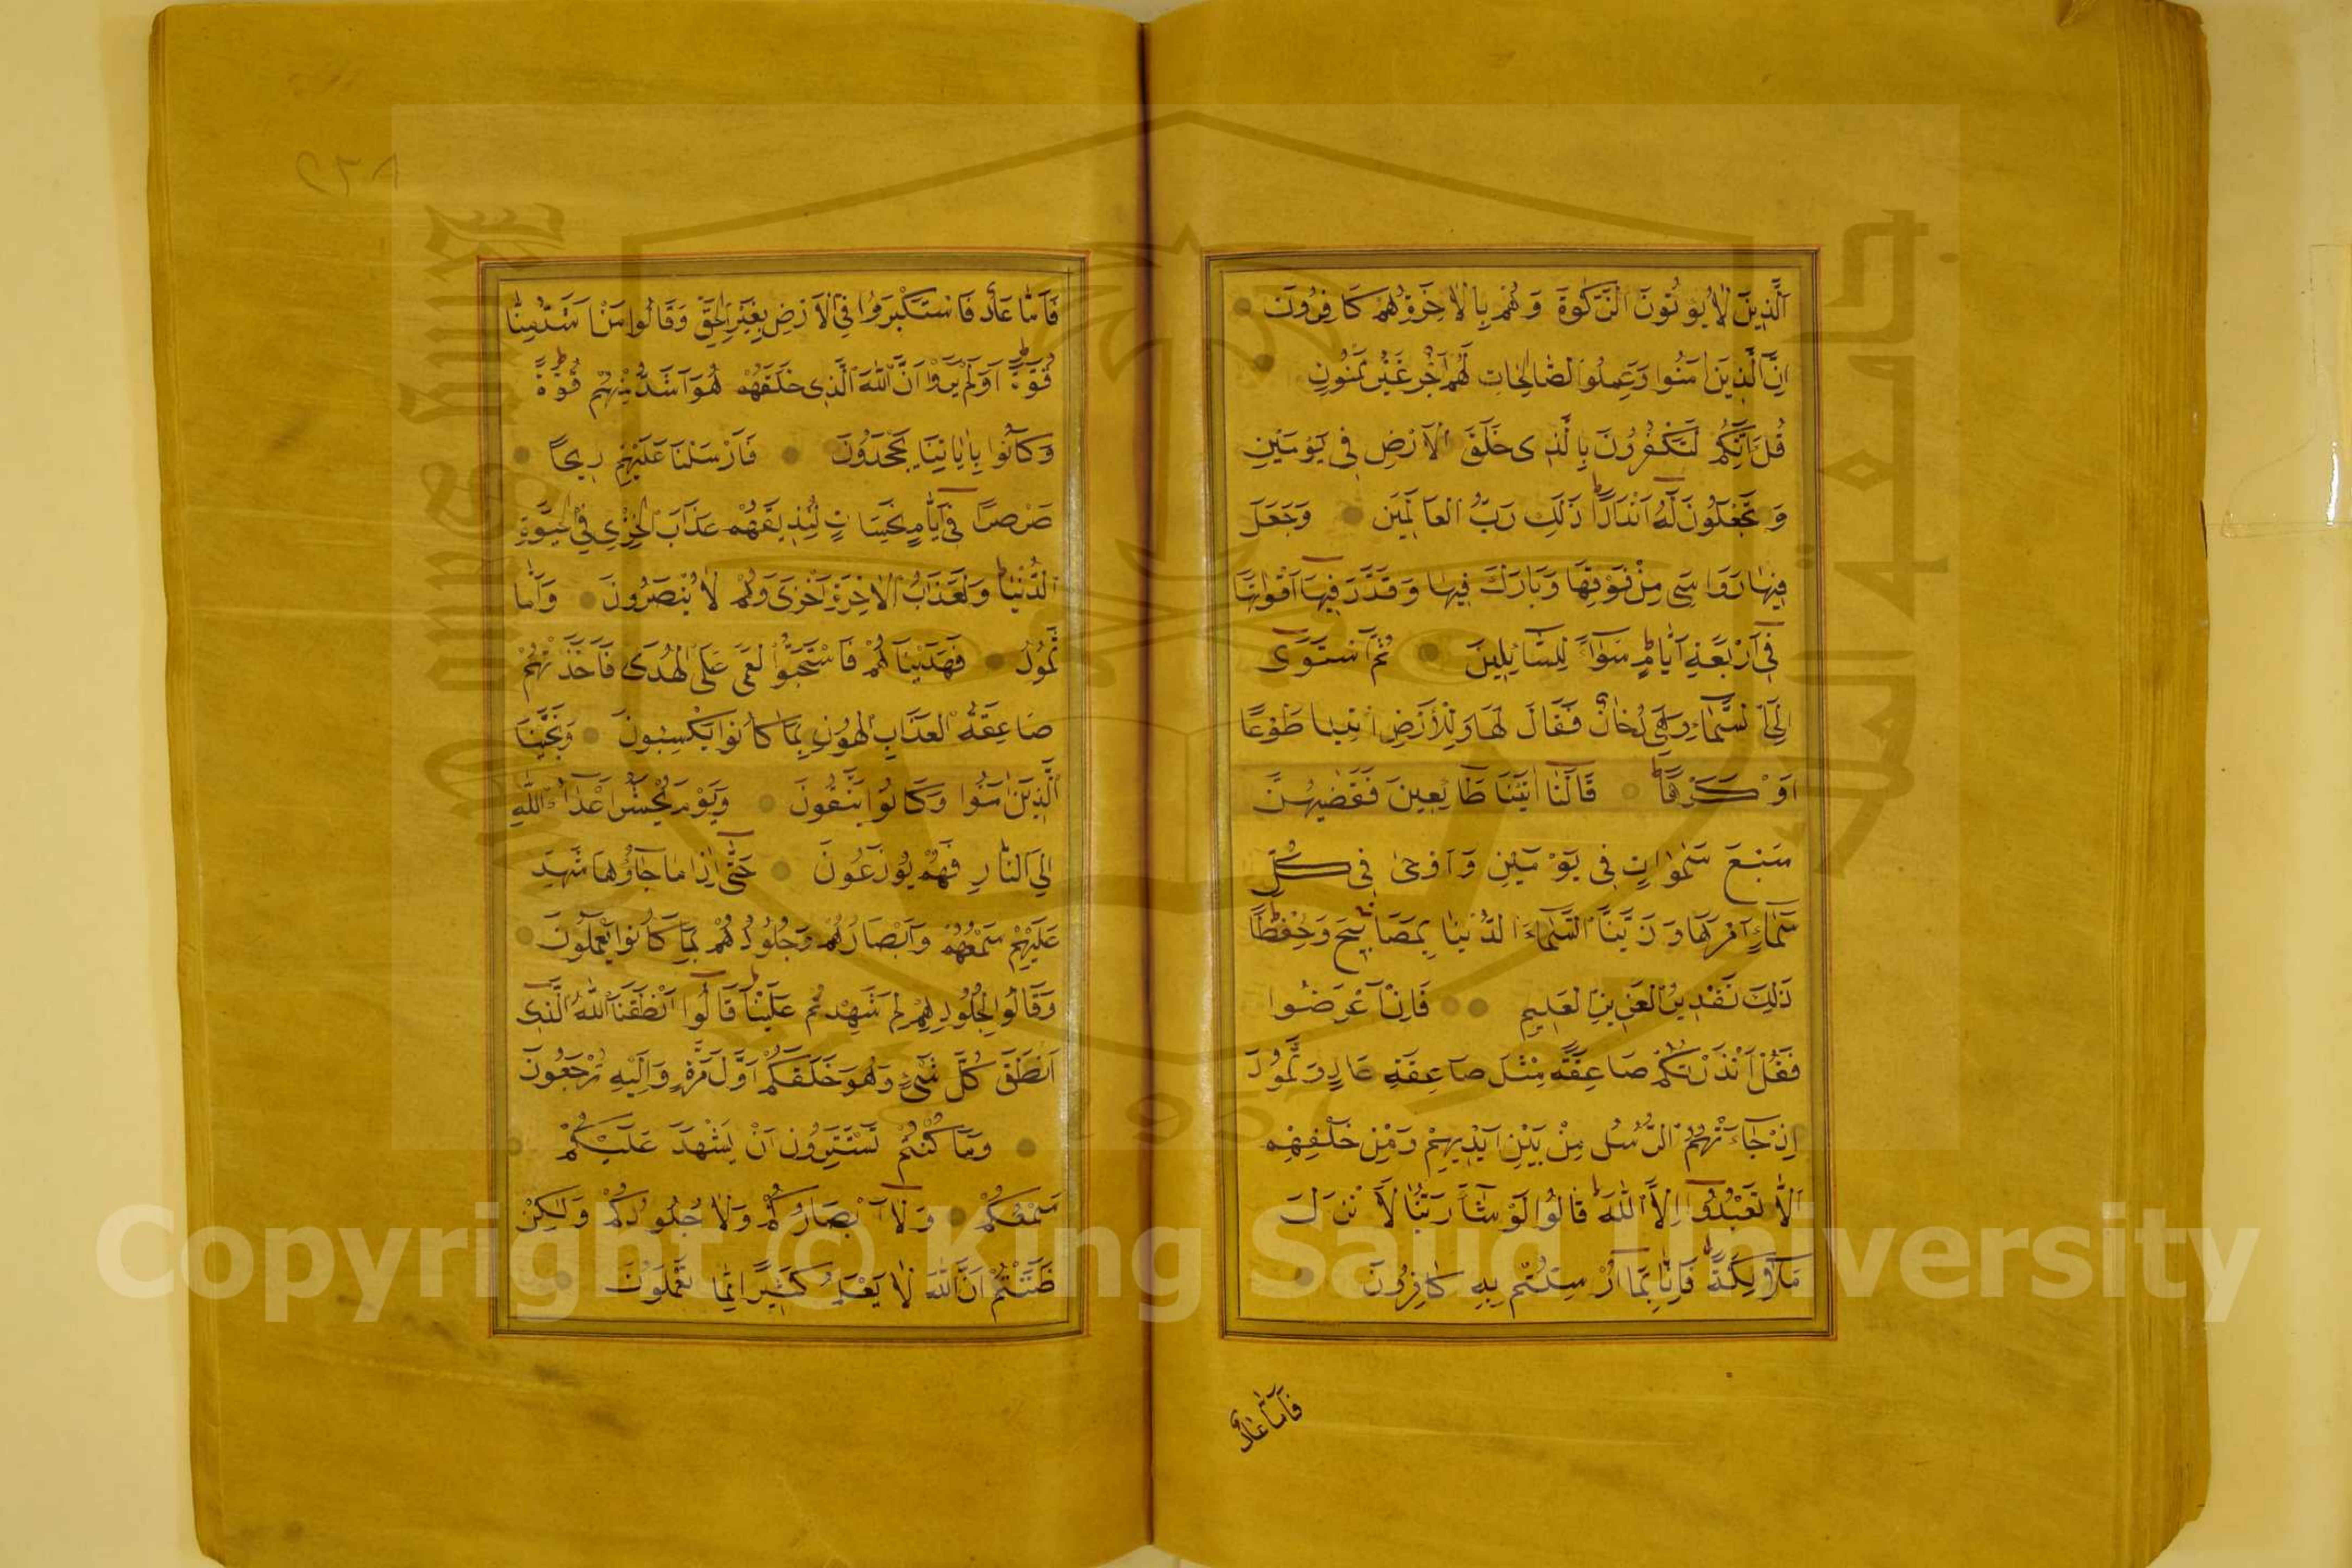 اَلَّذِينَ لَا يُؤْتُونَ الزَّكٰوةَ وَهُمْ بِالْاٰخِرَةِ هُمْ كَافِرُونَ
اِنَّ الَّذِينَ اٰمَنُوا وَعَمِلُوا الصَّالِحَاتِ لَهُمْ اَجْرٌ غَيْرُ مَمْنُونٍ
قُلْ اَئِنَّكُمْ لَتَكْفُرُونَ بِالَّذِى خَلَقَ الْاَرْضَ فِى يَوْمَيْنِ
وَتَجْعَلُونَ لَهُ اَنْدَادًا ط ذَلِكَ رَبُّ الْعَالَمِينَ وَجَعَلَ
فِيهَا رَوَاسِىَ مِنْ فَوْقِهَا وَبَارَكَ فِيهَا وَقَدَّرَ فِيهَا اَقْوَاتَهَا
فِى اَرْبَعَةِ اَيَّامٍ ط سَوَاءً لِلسَّائِلِينَ ثُمَّ اسْتَوَى
اِلَى السَّمَاءِ وَهِىَ دُخَانٌ فَقَالَ لَهَا وَلِلْاَرْضِ ائْتِيَا طَوْعًا
اَوْ كَرْهًا ط قَالَتَا اَتَيْنَا طَائِعِينَ فَقَضٰيهُنَّ
سَبْعَ سَمٰوَاتٍ فِى يَوْمَيْنِ وَاَوْحٰى فِى كُلِّ
سَمَاءٍ اَمْرَهَا وَزَيَّنَّا السَّمَاءَ الدُّنْيَا بِمَصَابِيحَ وَحِفْظًا ط
ذَلِكَ تَقْدِيرُ الْعَزِيزِ الْعَلِيمِ فَاِنْ اَعْرَضُوا
فَقُلْ اَنْذَرْتُكُمْ صَاعِقَةً مِثْلَ صَاعِقَةِ عَادٍ وَثَمُودَ
اِذْ جَاءَتْهُمُ الرُّسُلُ مِنْ بَيْنِ اَيْدِيهِمْ وَمِنْ خَلْفِهِمْ
اَلَّا تَعْبُدُوا اِلَّا اللهَ ط قَالُوا لَوْ شَاءَ رَبُّنَا لَاَنْزَلَ
مَلٰئِكَةً فَاِنَّا بِمَا اُرْسِلْتُمْ بِهِ كَافِرُونَ
فَاَمَّا عَادٌ
فَاَمَّا عَادٌ فَاسْتَكْبَرُوا فِى الْاَرْضِ بِغَيْرِ الْحَقِّ وَقَالُوا مَنْ اَشَدُّ مِنَّا
قُوَّةً ط اَوَلَمْ يَرَوْا اَنَّ اللهَ الَّذِى خَلَقَهُمْ هُوَ اَشَدُّ مِنْهُمْ قُوَّةً ط
وَكَانُوا بِاٰيَاتِنَا يَجْحَدُونَ فَاَرْسَلْنَا عَلَيْهِمْ رِيحًا
صَرْصَرًا فِى اَيَّامٍ نَحِسَاتٍ لِنُذِيقَهُمْ عَذَابَ الْخِزْىِ فِى الْحَيٰوةِ
الدُّنْيَا ط وَلَعَذَابُ الْاٰخِرَةِ اَخْزَى وَهُمْ لَا يُنْصَرُونَ وَاَمَّا
ثَمُودُ فَهَدَيْنَاهُمْ فَاسْتَحَبُّوا الْعَمَى عَلَى الْهُدَى فَاَخَذَتْهُمْ
صَاعِقَةُ الْعَذَابِ الْهُونِ بِمَا كَانُوا يَكْسِبُونَ وَنَجَّيْنَا
الَّذِينَ اٰمَنُوا وَكَانُوا يَتَّقُونَ وَيَوْمَ يُحْشَرُ اَعْدَاءُ اللهِ
اِلَى النَّارِ فَهُمْ يُوزَعُونَ حَتَّى اِذَا مَا جَاؤُهَا شَهِدَ
عَلَيْهِمْ سَمْعُهُمْ وَاَبْصَارُهُمْ وَجُلُودُهُمْ بِمَا كَانُوا يَعْمَلُونَ
وَقَالُوا لِجُلُودِهِمْ لِمَ شَهِدْتُمْ عَلَيْنَا ط قَالُوا اَنْطَقَنَا اللهُ الَّذِى
اَنْطَقَ كُلَّ شَىْءٍ وَهُوَ خَلَقَكُمْ اَوَّلَ مَرَّةٍ وَاِلَيْهِ تُرْجَعُونَ
وَمَا كُنْتُمْ تَسْتَتِرُونَ اَنْ يَشْهَدَ عَلَيْكُمْ
سَمْعُكُمْ وَلَا اَبْصَارُكُمْ وَلَا جُلُودُكُمْ وَلٰكِنْ
ظَنَنْتُمْ اَنَّ اللهَ لَا يَعْلَمُ كَثِيرًا مِمَّا تَعْمَلُونَ
Copyright © King Saud University
1957